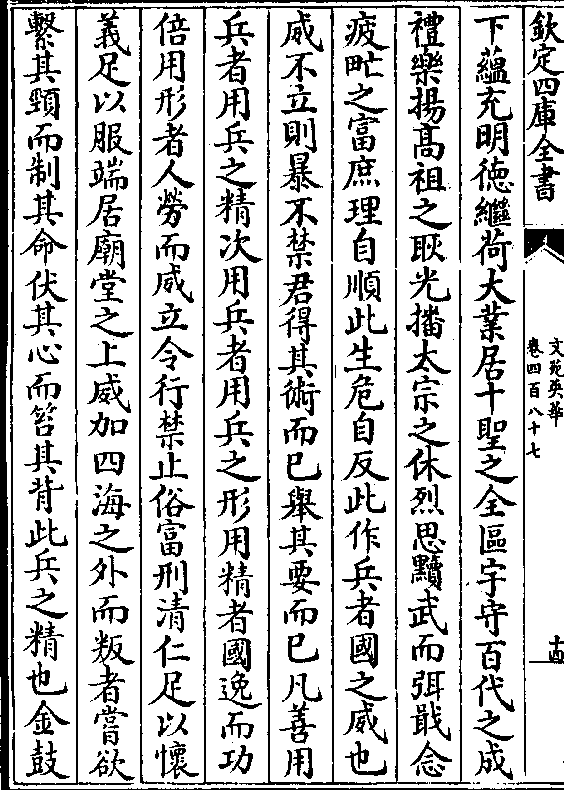 欽定四庫全書
文苑英華
卷四百八十七
十四
下蘊充明徳繼荷大業居十聖之全區宇守百代之成
禮樂揚髙祖之耿光播太宗之休烈思黷武而弭戢念
疲甿之富庶理自順此生危自反此作兵者國之威也
威不立則暴不禁君得其術而已舉其要而已凡善用
兵者用兵之精次用兵者用兵之形用精者國逸而功
倍用形者人勞而威立令行禁止俗富刑清仁足以懷
義足以服端居廟堂之上威加四海之外而叛者嘗欲
繫其頸而制其命伏其心而笞其背此兵之精也金鼓